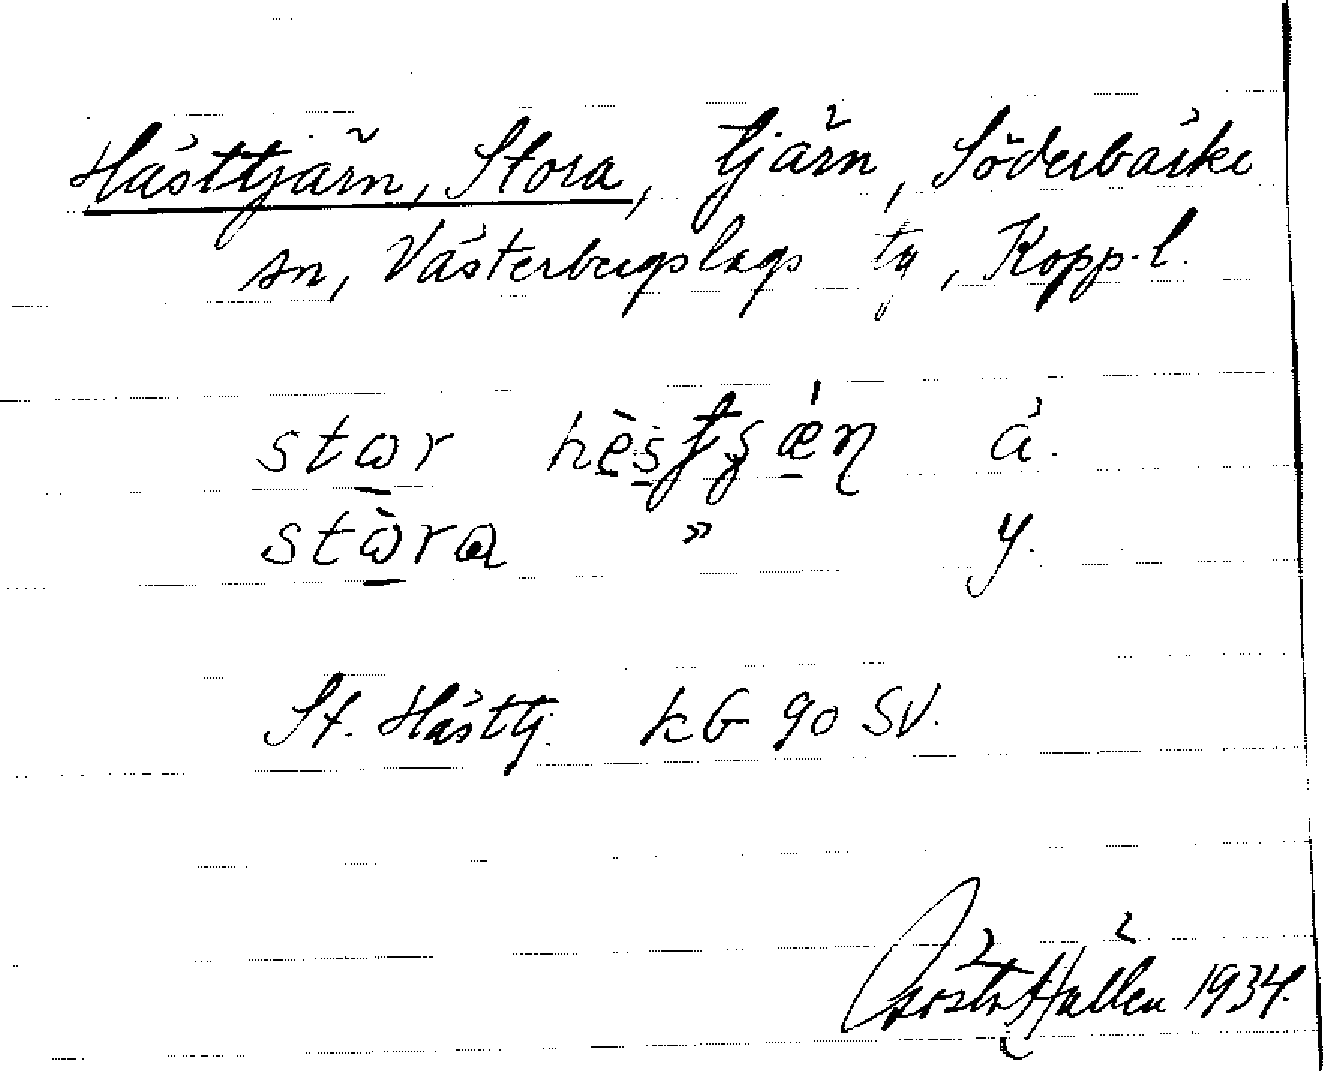 Hästtjärn, Stora, tjärn, Söderbärke
sn, Västerbergslags tg, Kopp. l.
star hèstʂǽɳ ä.
stàra » y.
St. Hästtj. kG 90 SV.
Gösta Hallén 1934.